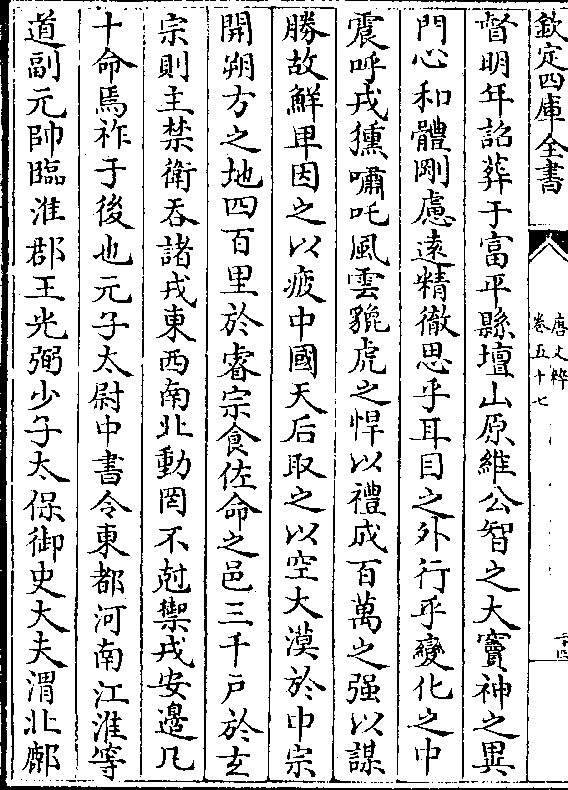 欽定四庫全書
唐文粹
卷五十七
督明年詔葬于富平縣壇山原維公智之大竇神之異
門心和體剛慮遠精徹思乎耳目之外行乎變化之中
震呼戎獯嘯吒風雲貔虎之悍以禮成百萬之强以謀
勝故鮮卑因之以疲中國天后取之以空大漠於中宗
開朔方之地四百里於睿宗食佐命之邑三千户於𤣥
宗則主禁衛吞諸戎東西南北動罔不尅禦戎安邊凡
十命焉祚于後也元子太尉中書令東都河南江淮等
道副元帥臨淮郡王光弼少子太保御史大夫渭北鄜